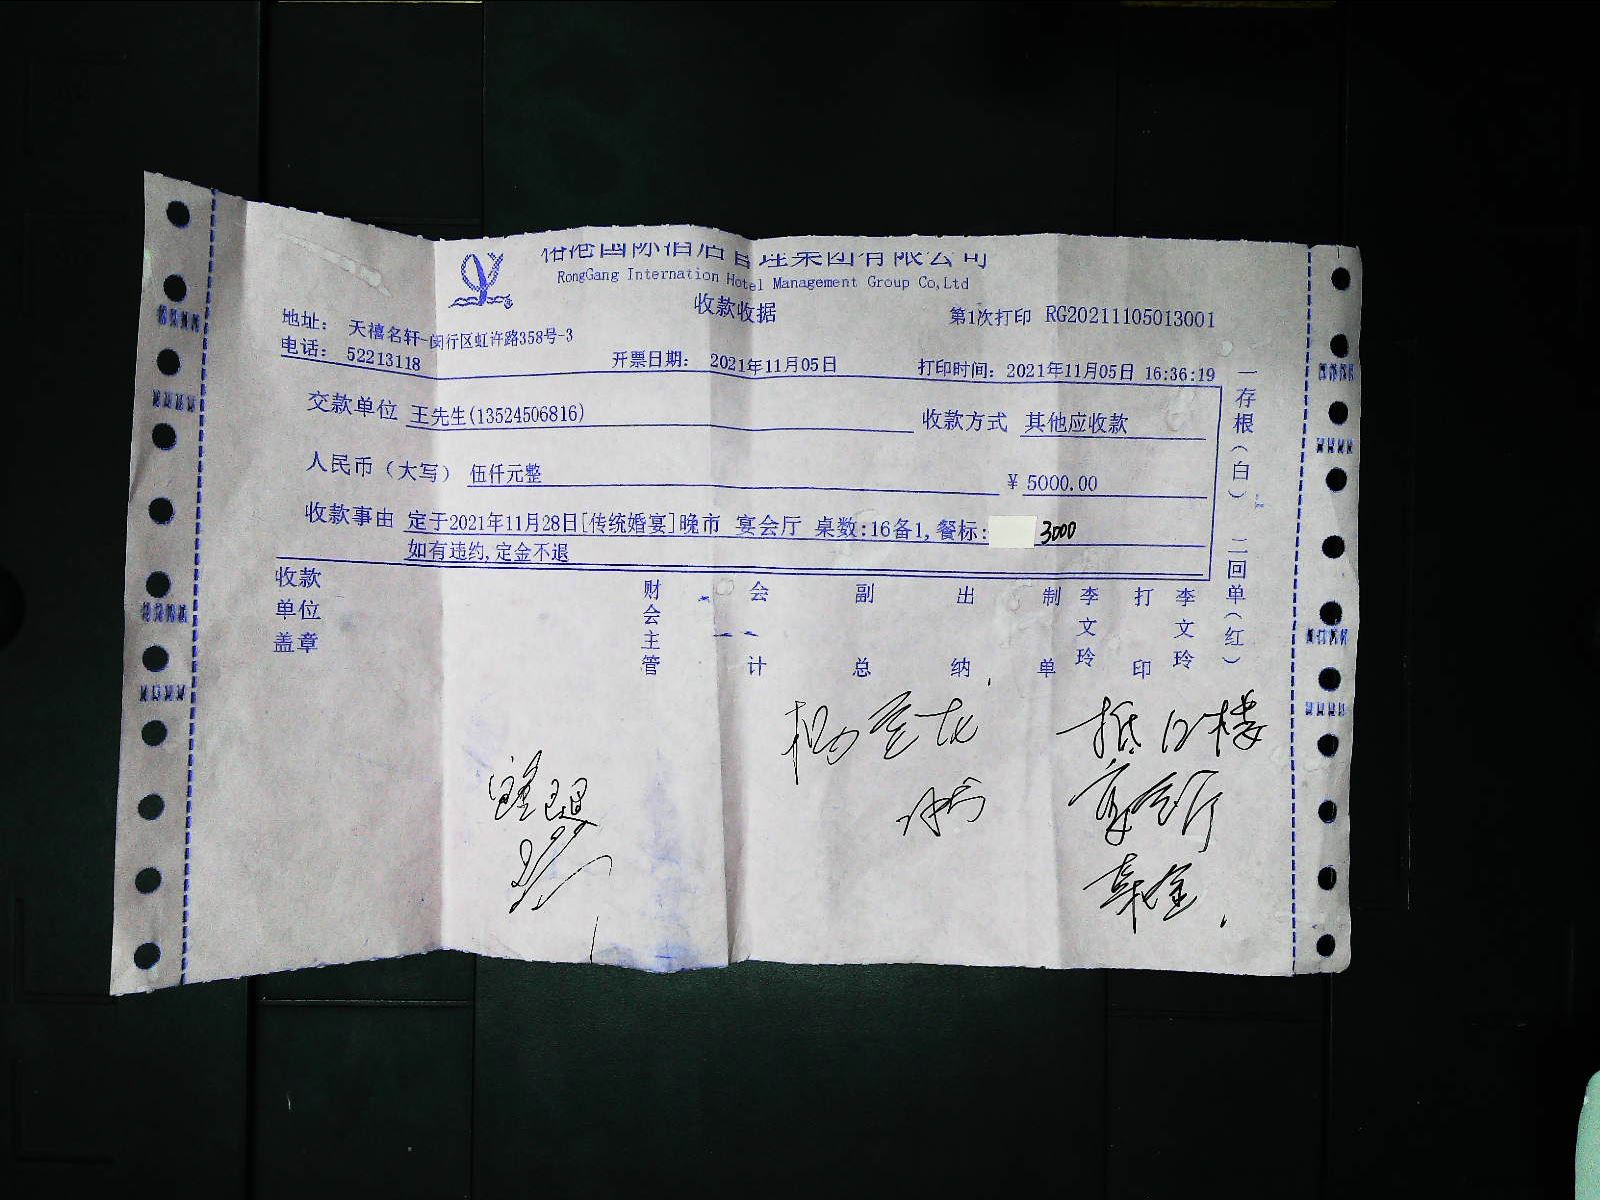 国际酒店管理集团有限公司
RongGang Internation Hotel Management Group Co,Ltd
收款收据
第1次打印 RG20211105013001
地址: 天禧名轩-闵行区虹许路358号-3
电话: 52213118
开票日期: 2021年11月05日
打印时间: 2021年11月05日 16:36:19
交款单位 王先生(13524506816)
收款方式 其他应收款
人民币(大写) 伍仟元整
¥ 5000.00
收款事由 定于2021年11月28日[传统婚宴]晚市 宴会厅 桌数:16备1,餐标: 3000
如有违约,定金不退
收款单位盖章
财会主管
会计
副总
出纳
制单
李文玲
打印
李文玲
一存根(白) 二回单(红)